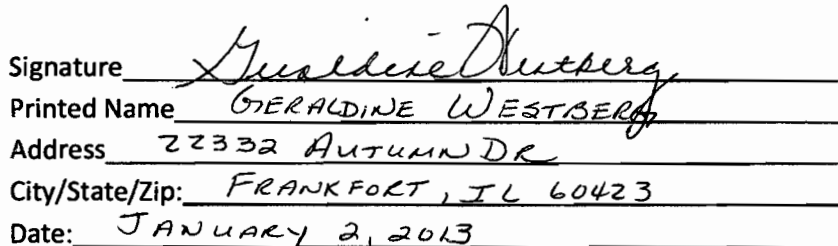 Signature Geraldine Westberg
Printed Name GERALDINE WESTBERG
Address 22332 AUTUMN DR
City/State/Zip: FRANKFORT, IL 60423
Date: JANUARY 2, 2013